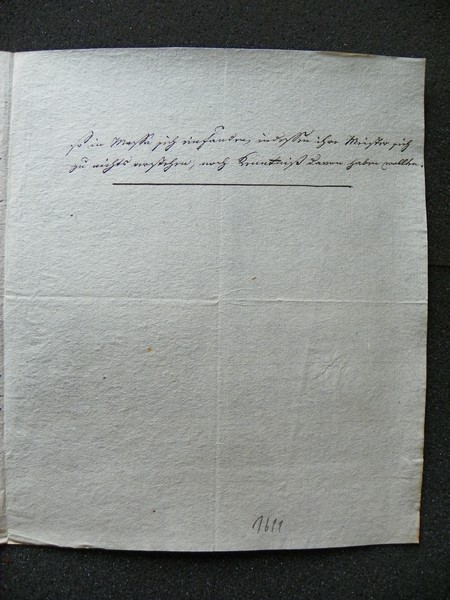 so in Masse sich einfanden, indessen ihre Meister sich
zu nichts verstehen, noch Kenntniß davon haben wollten.
1611